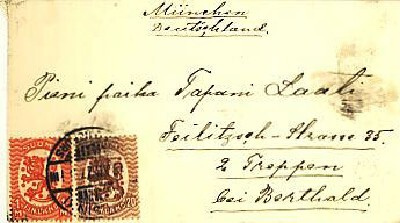 München
Deutschland.
Pieni poika Tapani Laati
Feilitzsch-Strasse 35.
2 Treppen
bei Berthald.
SUOMI